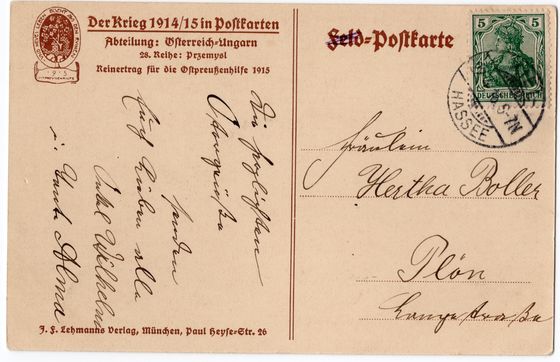 Der Krieg 1914/15 in Postkarten
Abteilung: Österreich-Ungarn
28. Reihe: Przemysl
Reinertrag für die Ostpreußenhilfe 1915
Feld-Postkarte
5 5
DEUTSCHES REICH
HASSEE
Die herzlichsten
Ostergrüße
senden
Euch Lieben alle
Onkel Wilhelm
u Tante Alma
Fräulein
Hertha Boller
Plön
Langestraße
J. F. Lehmanns Verlag, München, Paul Heyse-Str. 26